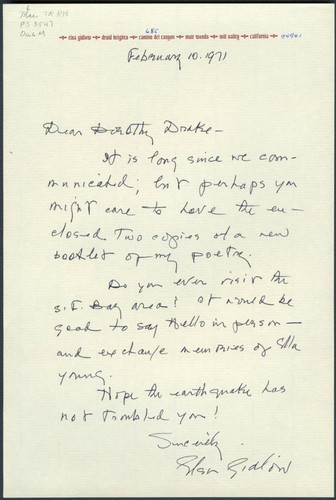 elsa gidlow • druid heights • camino del canyon • muir woods • mill valley • california
685
94941
February 10. 1971
Dear Dorothy Drake—
It is long since we com-
municated; but perhaps you
might care to have the en-
closed two copies of a new
booklet of my poetry.
Do you ever visit the
S.F. Bay area? It would be
good to say hello in person—
and exchange memories of Ella
Young.
Hope the earthquake has
not troubled you!
Sincerely,
Elsa Gidlow